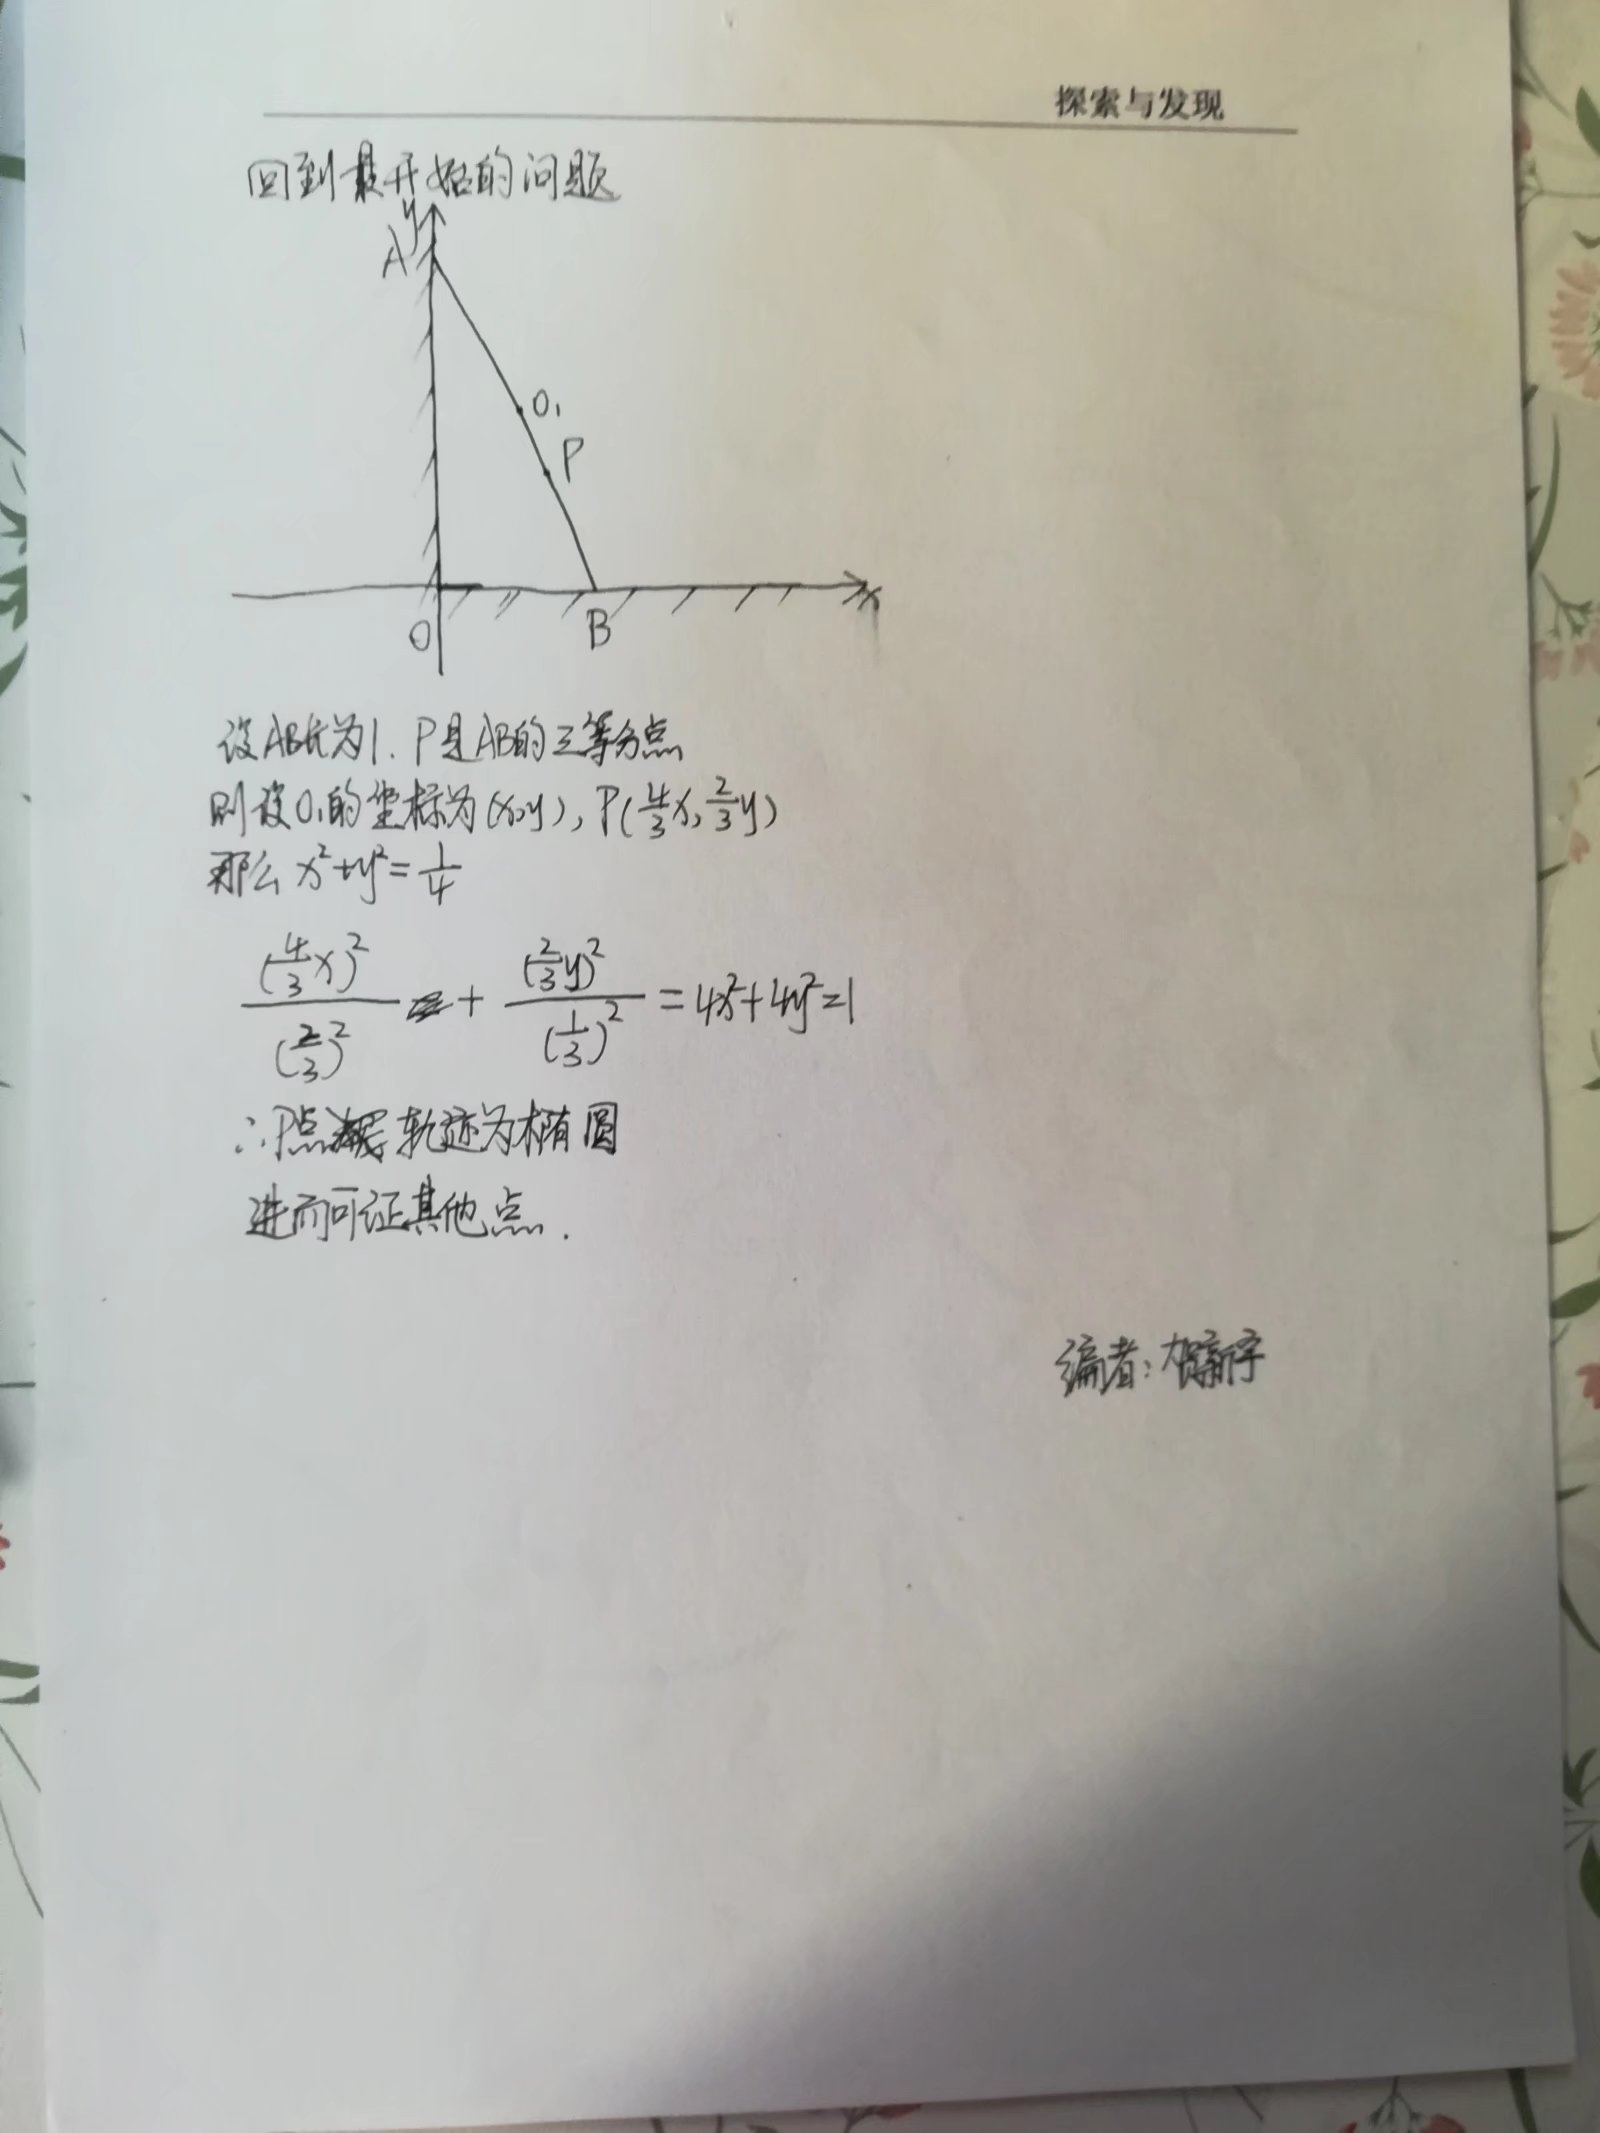 探索与发现
回到最开始的问题
y
A
O₁
P
x
O
B
设AB长为1. P是AB的三等分点
则设O₁的坐标为(x,y), P(4/3x, 2/3y)
那么 x²+y²=1/4
(4/3x)²/(2/3)² + (2/3y)²/(1/3)² = 4x²+4y²=1
∴P点轨迹为椭圆
进而可证其他点.
编者：贺新宇